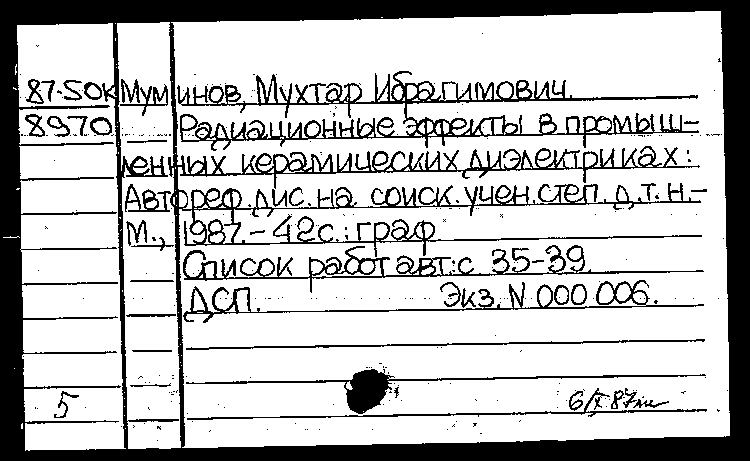 87-50к Муминов, Мухтар Ибрагимович.
8970 Радиационные эффекты в промыш-
ленных керамических диэлектриках:
Автореф. дис. на соиск. учен. степ. д.т.н.-
М., 1987.-42с.: граф
Список работ авт.: с 35-39.
ДСП. Экз. N 000 006.
5 6/X 87